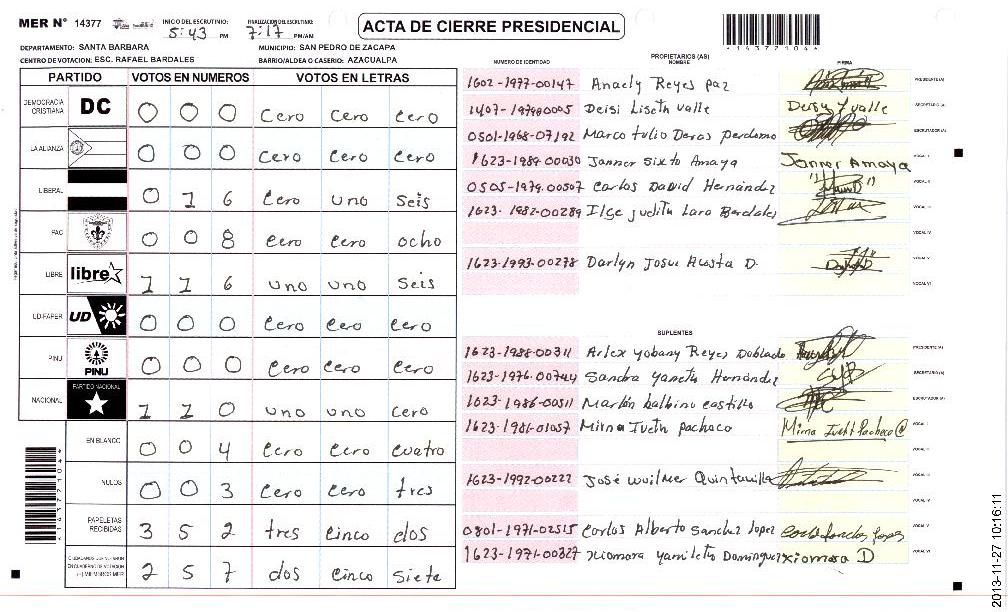 MER N° 14377
INICIO DEL ESCRUTINIO: 5:43 PM
FINALIZACION DEL ESCRUTINIO: 7:17 PM/AM
ACTA DE CIERRE PRESIDENCIAL
*14377104*
DEPARTAMENTO: SANTA BARBARA
MUNICIPIO: SAN PEDRO DE ZACAPA
CENTRO DE VOTACION: ESC. RAFAEL BARDALES
BARRIO/ALDEA O CASERIO: AZACUALPA
PARTIDO VOTOS EN NUMEROS VOTOS EN LETRAS
DEMOCRACIA CRISTIANA DC 0 0 0 Cero Cero Cero
LA ALIANZA 0 0 0 Cero Cero Cero
LIBERAL 0 1 6 Cero uno Seis
PAC 0 0 8 Cero Cero ocho
LIBRE libre 1 1 6 uno uno Seis
UD-FAPER UD 0 0 0 Cero Cero Cero
PINU PINU 0 0 0 Cero Cero Cero
NACIONAL PARTIDO NACIONAL 1 1 0 uno uno Cero
EN BLANCO 0 0 4 Cero Cero Cuatro
NULOS 0 0 3 Cero Cero tres
PAPELETAS RECIBIDAS 3 5 2 tres Cinco dos
CIUDADANOS QUE VOTARON EN CUADERNO DE VOTACION (+) MIEMBROS MER 2 5 7 dos Cinco Siete
*14377104*
PROPIETARIOS (AS)
NUMERO DE IDENTIDAD NOMBRE FIRMA
1602-1977-00147 Anaely Reyes paz PRESIDENTE (A)
Deisi Liseth valle Deisy Y valle SECRETARIO (A)
0501-1968-07192 Marco tulio Deras perdomo ESCRUTADOR (A)
1623-1984-00030 Janner Sixto Amaya Janner Amaya VOCAL I
0505-1979-00507 Carlos David Hernández VOCAL II
1623-1982-00289 Ilse judith Lara Bardales VOCAL III
VOCAL IV
1623-1993-00278 Darlyn Josue Acosta D. VOCAL V
VOCAL VI
SUPLENTES
1623-1988-00311 Arlex yobany Reyes Doblado PRESIDENTE (A)
1623-1976-00744 Sandra yaneth Hernández SECRETARIO (A)
1623-1986-00511 Marlon balbino castillo ESCRUTADOR (A)
1623-1981-01057 Mirna Iveth pacheco Mirna Iveth Pacheco VOCAL I
VOCAL II
1623-1992-00222 José wuilmer Quintanilla VOCAL III
VOCAL IV
0801-1971-02515 Carlos Alberto Sanchez lopez VOCAL V
1623-1971-00327 xiomara yamileth Dominguez xiomara D VOCAL VI
2013-11-27 10:16:11